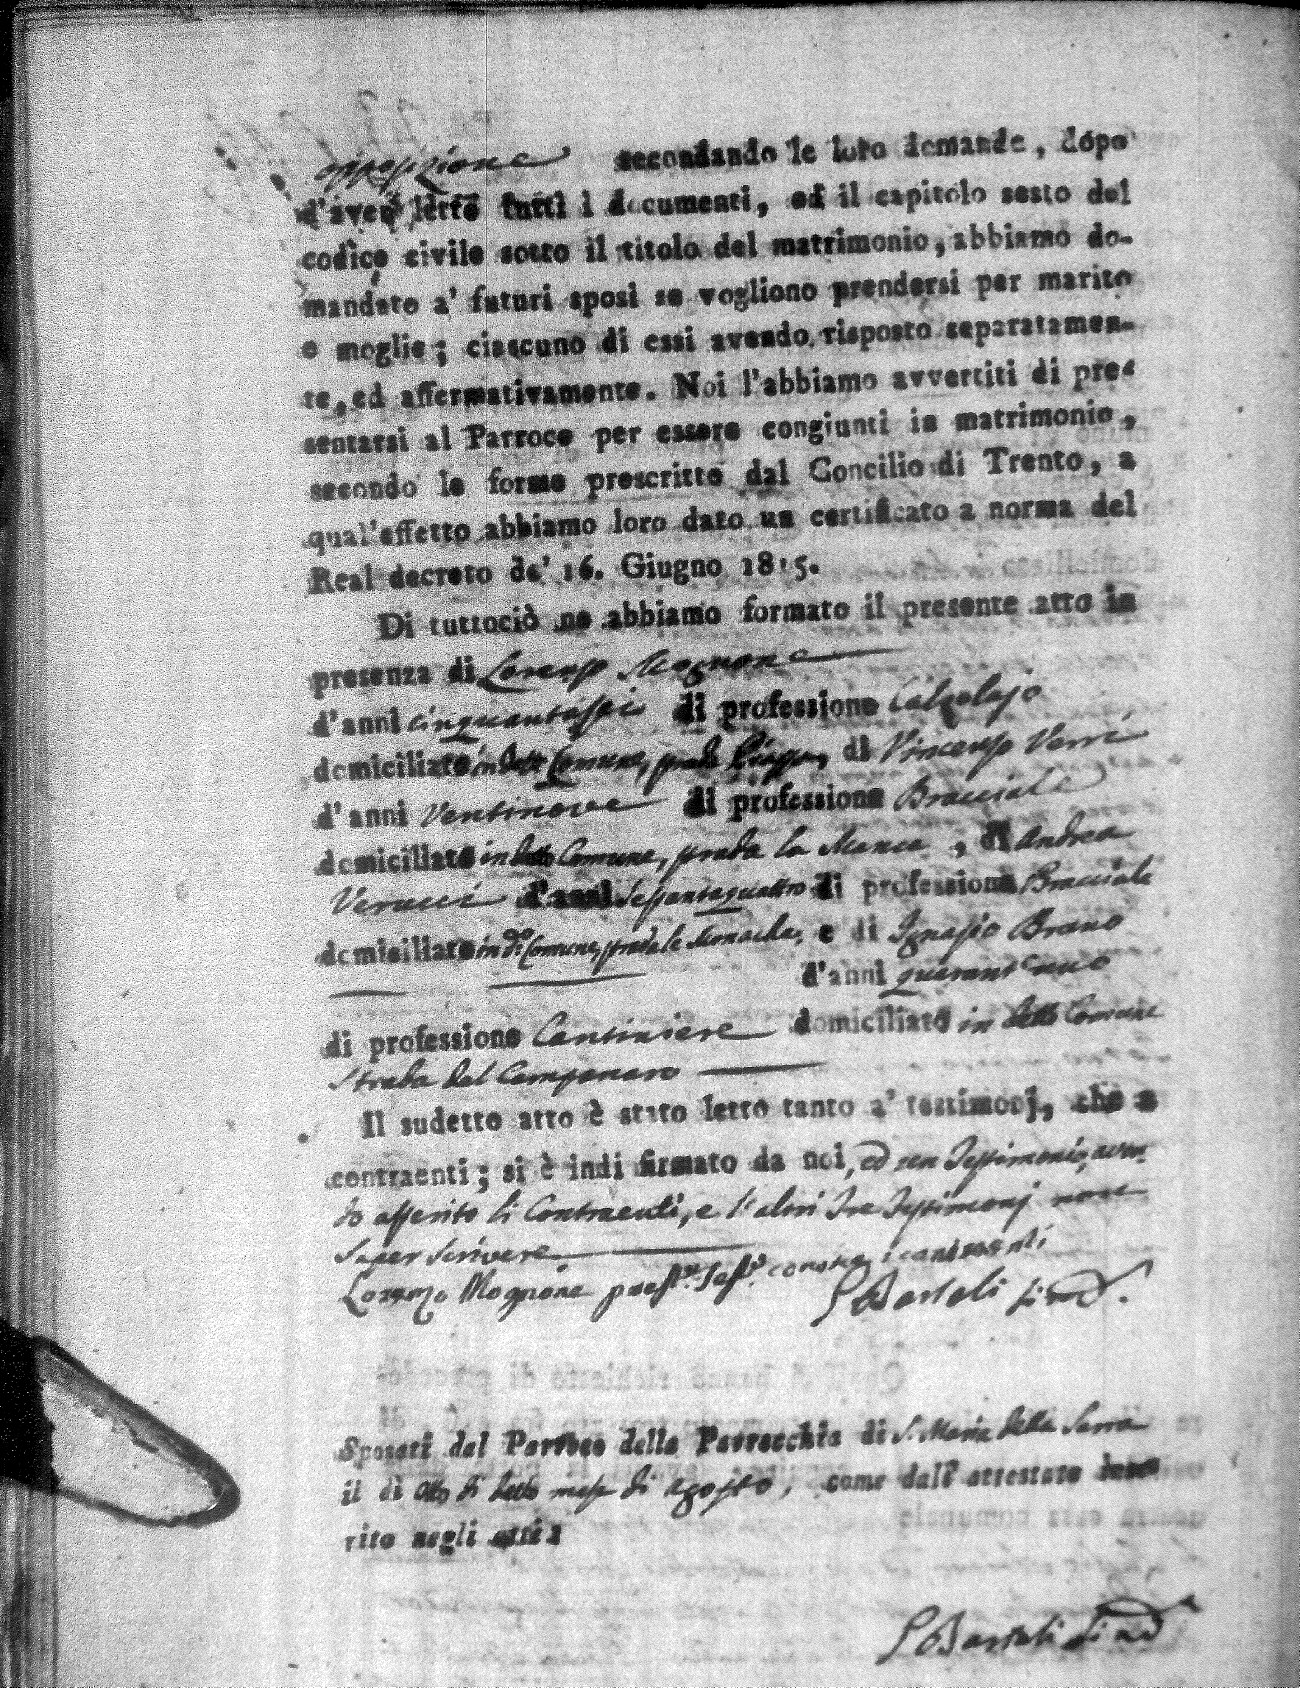 opposizione secondando le loro demande, dopo
d'aver letto tutti i documenti, ed il capitolo sesto del
codice civile sotto il titolo del matrimonio, abbiamo do-
mandato a' futuri sposi se vogliono prendersi per marito
e moglie; ciascuno di essi avendo risposto separatamen-
te, ed affermativamente. Noi l'abbiamo avvertiti di pre-
sentarsi al Parroco per essere congiunti in matrimonio,
secondo le forme prescritte dal Concilio di Trento, a
qual'effetto abbiamo loro dato un certificato a norma del
Real decreto de' 16. Giugno 1815.
Di tuttociò ne abbiamo formato il presente atto in
presenza di Lorenzo Mognone
d'anni cinquantasei di professione Calzolajo
domiciliato in detto Comune, strada di Vincenzo Verri
d'anni Ventinove di professione Bracciale
domiciliato in detto Comune, strada la Manca, di Andrea
Veracci d'anni Sessantaquattro di professione Bracciale
domiciliato in do. Comune, strada le Monache, e di Ignazio Bruno
d'anni quarantuno
di professione Cantiniere domiciliato in detto Comune
Strada del Campanaro
Il sudetto atto è stato letto tanto a' testimonj, che a
contraenti; si è indi firmato da noi, ed un Testimonio, aven-
do asserito li Contraenti, e l'altri Tre Testimonj non
saper scrivere
Lorenzo Mognone contraenti
Bartoli Sind.
Sposati dal Parroco della Parrocchia di S. Maria della Serra
il dì otto di detto mese di agosto, come dall' attestato inse-
rito negli atti
Bartoli Sind